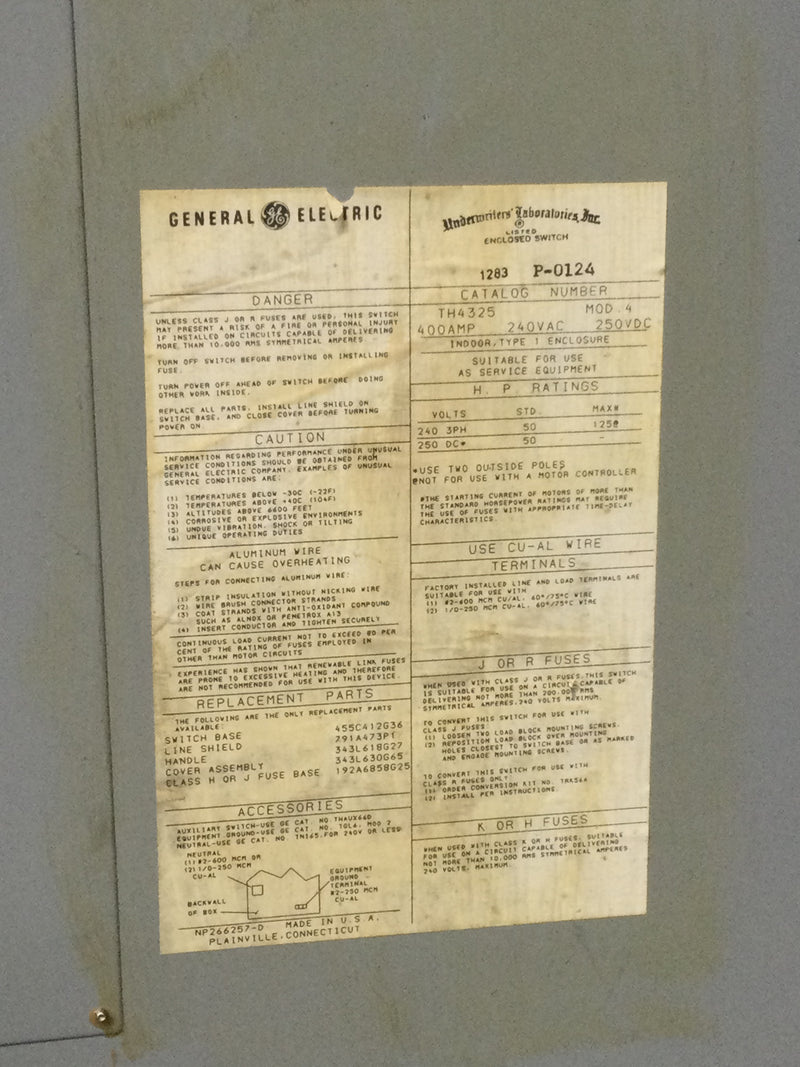 GENERAL GE ELECTRIC
DANGER
UNLESS CLASS J OR R FUSES ARE USED, THIS SWITCH
MAY PRESENT A RISK OF A FIRE OR PERSONAL INJURY
IF INSTALLED ON CIRCUITS CAPABLE OF DELIVERING
MORE THAN 10,000 RMS SYMMETRICAL AMPERES
TURN OFF SWITCH BEFORE REMOVING OR INSTALLING
FUSE.
TURN POWER OFF AHEAD OF SWITCH BEFORE DOING
OTHER WORK INSIDE.
REPLACE ALL PARTS, INSTALL LINE SHIELD ON
SWITCH BASE, AND CLOSE COVER BEFORE TURNING
POWER ON
CAUTION
INFORMATION REGARDING PERFORMANCE UNDER UNUSUAL
SERVICE CONDITIONS SHOULD BE OBTAINED FROM
GENERAL ELECTRIC COMPANY. EXAMPLES OF UNUSUAL
SERVICE CONDITIONS ARE:
(1) TEMPERATURES BELOW -30C (-22F)
(2) TEMPERATURES ABOVE +40C (104F)
(3) ALTITUDES ABOVE 6600 FEET
(4) CORROSIVE OR EXPLOSIVE ENVIRONMENTS
(5) UNDUE VIBRATION, SHOCK OR TILTING
(6) UNIQUE OPERATING DUTIES
ALUMINUM WIRE
CAN CAUSE OVERHEATING
STEPS FOR CONNECTING ALUMINUM WIRE:
(1) STRIP INSULATION WITHOUT NICKING WIRE
(2) WIRE BRUSH CONNECTOR STRANDS
(3) COAT STRANDS WITH ANTI-OXIDANT COMPOUND
SUCH AS ALNOX OR PENETROX A13
(4) INSERT CONDUCTOR AND TIGHTEN SECURELY
CONTINUOUS LOAD CURRENT NOT TO EXCEED 80 PER
CENT OF THE RATING OF FUSES EMPLOYED IN
OTHER THAN MOTOR CIRCUITS
EXPERIENCE HAS SHOWN THAT RENEWABLE LINK FUSES
ARE PRONE TO EXCESSIVE HEATING AND THEREFORE
ARE NOT RECOMMENDED FOR USE WITH THIS DEVICE
REPLACEMENT PARTS
THE FOLLOWING ARE THE ONLY REPLACEMENT PARTS
AVAILABLE:
SWITCH BASE 455C412G36
LINE SHIELD 291A473P1
HANDLE 343L618G27
COVER ASSEMBLY 343L630G65
CLASS H OR J FUSE BASE 192A6858G25
ACCESSORIES
AUXILIARY SWITCH-USE GE CAT. NO. THAUX66D
EQUIPMENT GROUND-USE GE CAT. NO. TGL6, MOD 2
NEUTRAL-USE GE CAT. NO. TN165, FOR 240V OR LESS
NEUTRAL
(1) #2-600 MCM OR
(2) 1/0-250 MCM
CU-AL
BACKWALL
OF BOX
EQUIPMENT
GROUND
TERMINAL
#2-250 MCM
CU-AL
NP266257-D MADE IN U.S.A.
PLAINVILLE, CONNECTICUT
Underwriters' Laboratories, Inc.
LISTED
ENCLOSED SWITCH
1283 P-0124
CATALOG NUMBER
TH4325 MOD.4
400AMP 240VAC 250VDC
INDOOR, TYPE 1 ENCLOSURE
SUITABLE FOR USE
AS SERVICE EQUIPMENT
H.P. RATINGS
VOLTS STD. MAX#
240 3PH 50 125@
250 DC* 50 -
*USE TWO OUTSIDE POLES
@NOT FOR USE WITH A MOTOR CONTROLLER
#THE STARTING CURRENT OF MOTORS OF MORE THAN
THE STANDARD HORSEPOWER RATINGS MAY REQUIRE
THE USE OF FUSES WITH APPROPRIATE TIME-DELAY
CHARACTERISTICS
USE CU-AL WIRE
TERMINALS
FACTORY INSTALLED LINE AND LOAD TERMINALS ARE
SUITABLE FOR USE WITH
(1) #2-600 MCM CU/AL, 60°/75°C WIRE
(2) 1/0-250 MCM CU-AL, 60°/75°C WIRE
J OR R FUSES
WHEN USED WITH CLASS J OR R FUSES THIS SWITCH
IS SUITABLE FOR USE ON A CIRCUIT CAPABLE OF
DELIVERING NOT MORE THAN 200,000 RMS
SYMMETRICAL AMPERES, 240 VOLTS MAXIMUM.
TO CONVERT THIS SWITCH FOR USE WITH
CLASS J FUSES
(1) LOOSEN TWO LOAD BLOCK MOUNTING SCREWS.
(2) REPOSITION LOAD BLOCK OVER MOUNTING
HOLES CLOSEST TO SWITCH BASE OR AS MARKED
AND ENGAGE MOUNTING SCREWS.
TO CONVERT THIS SWITCH FOR USE WITH
CLASS R FUSES ONLY
(1) ORDER CONVERSION KIT NO.
(2) INSTALL PER INSTRUCTIONS
K OR H FUSES
WHEN USED WITH CLASS K OR H FUSES, SUITABLE
FOR USE ON A CIRCUIT CAPABLE OF DELIVERING
NOT MORE THAN 10,000 RMS SYMMETRICAL AMPERES
240 VOLTS, MAXIMUM.